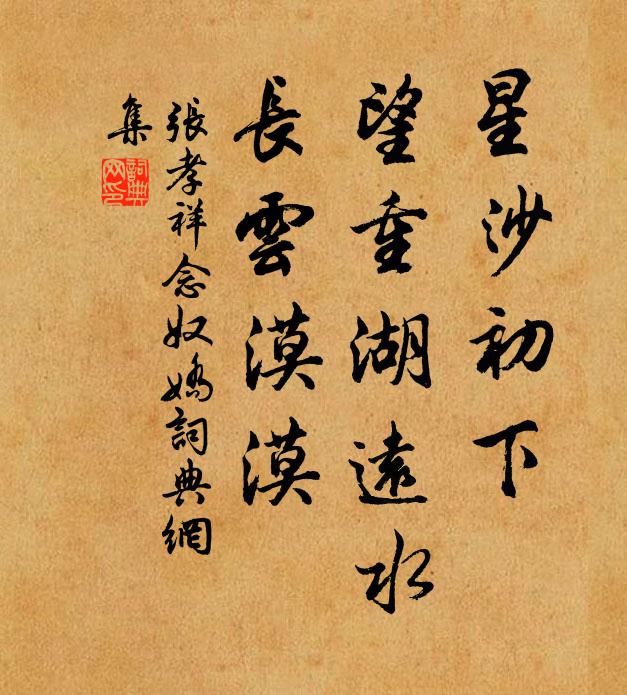 星沙初下
望重湖遠水
長雲漠漠
張孝祥念奴嬌詞典網
集
詞典网印